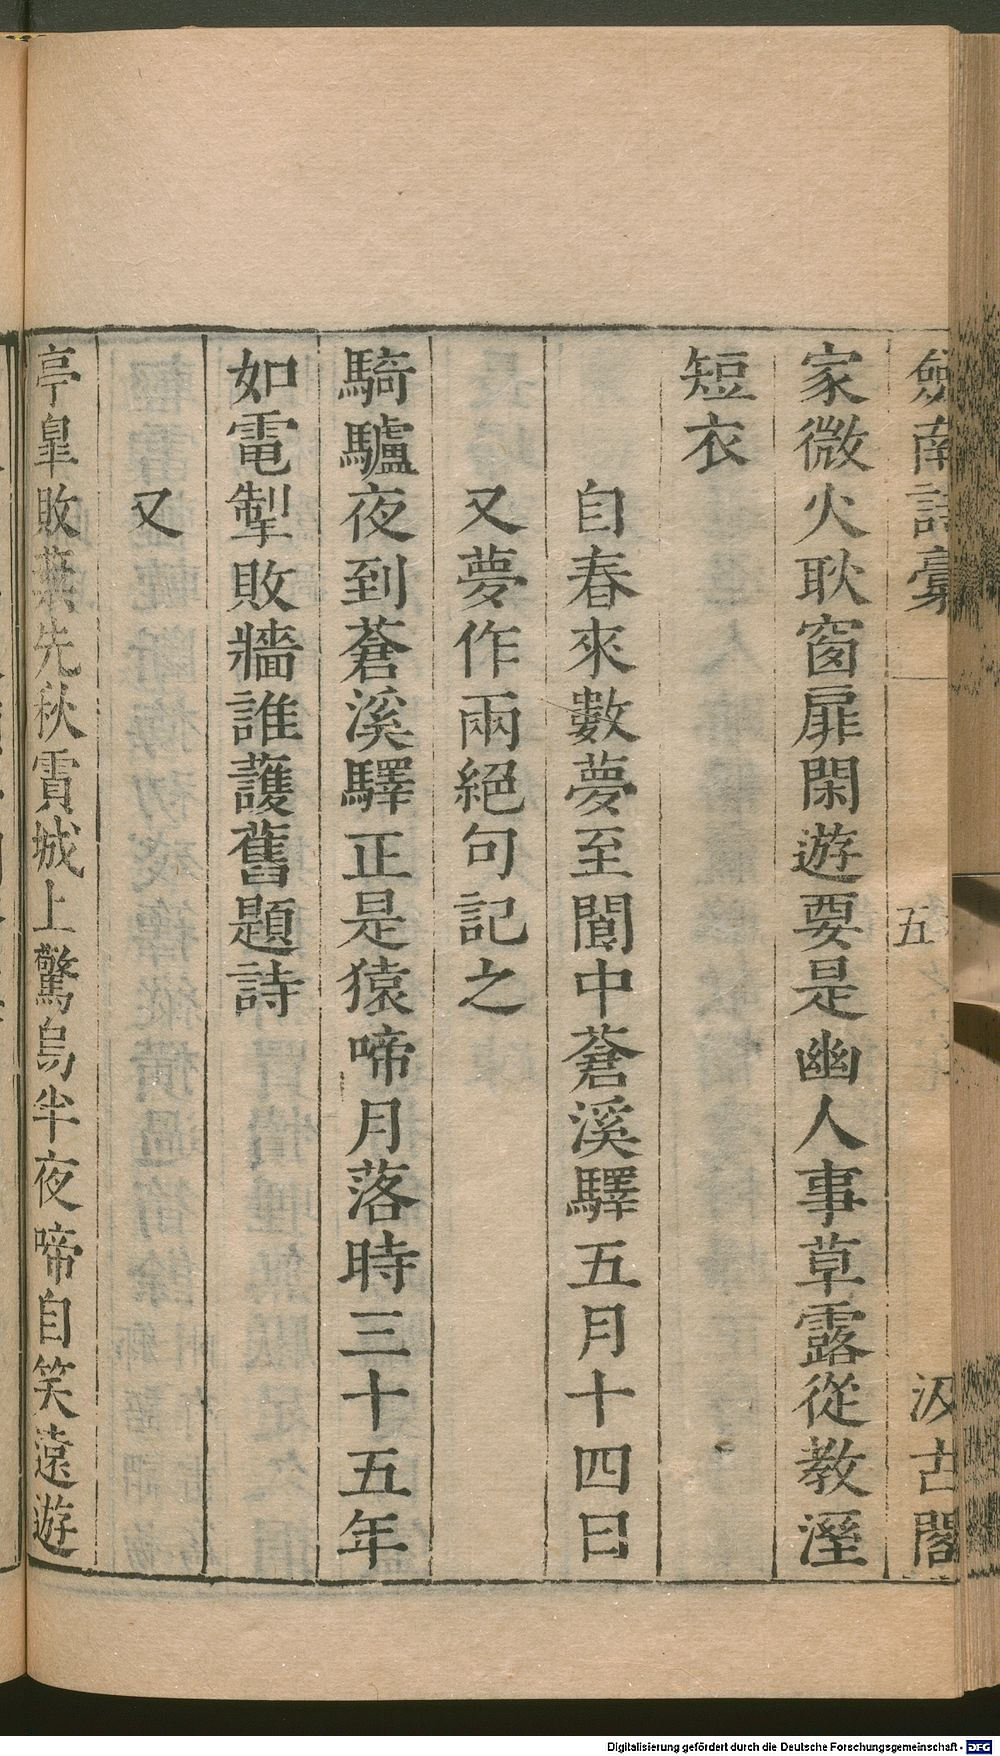 劍南詩稾
五
汲古閣
家微火耿窗扉閑遊要是幽人事草露從教溼
短衣
自春來數夢至閬中蒼溪驛五月十四日
又夢作兩絕句記之
騎驢夜到蒼溪驛正是猿啼月落時三十五年
如電掣敗牆誰護舊題詩
又
亭皐敗葉先秋霣城上驚烏半夜啼自笑遠遊
Digitalisierung gefördert durch die Deutsche Forschungsgemeinschaft - DFG